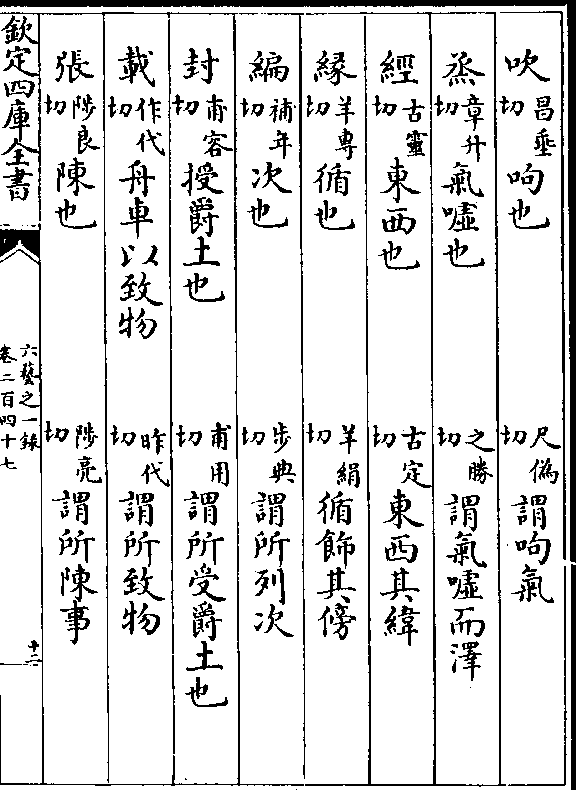 吹昌垂切呴也　尺僞切謂呴氣
蒸章升切氣噓也　之勝切謂氣噓而澤
經古靈切東西也　古定切東西其緯
緣羊專切循也　羊絹切循飾其傍
編補年切次也　步典切謂所列次
封甫容切授爵土也　甫用切謂所受爵土也
載作代切舟車以致物　昨代切謂所致物
張陟良切陳也　陟亮切謂所陳事
欽定四庫全書　六藝之一錄卷二百四十七　十二